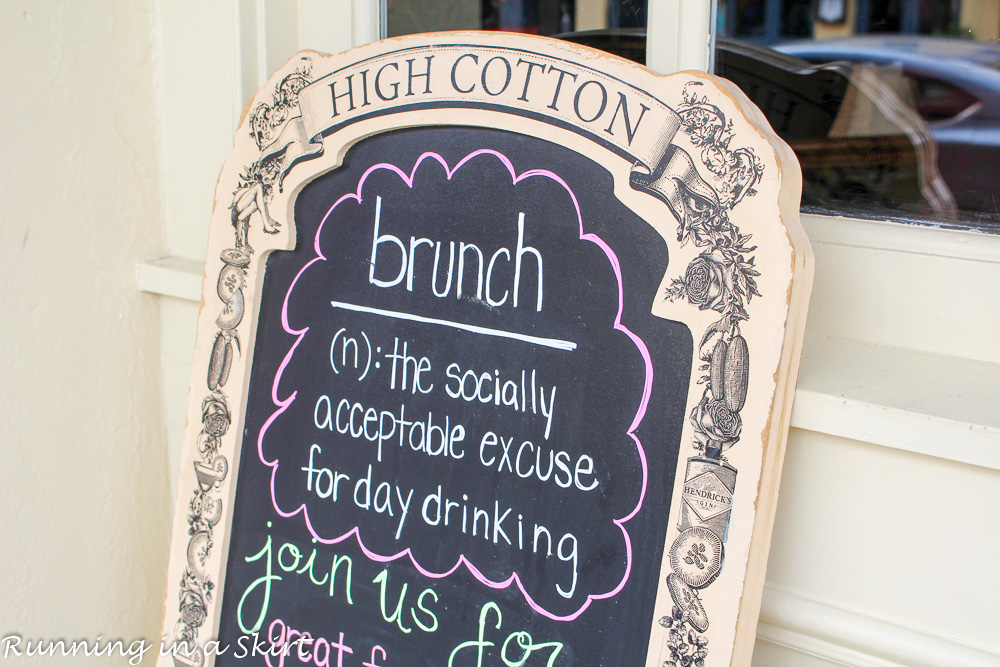 HIGH COTTON
brunch
(n): the socially
acceptable excuse
for day drinking
join us for
great
HENDRICK'S
GIN
Running in a Skirt